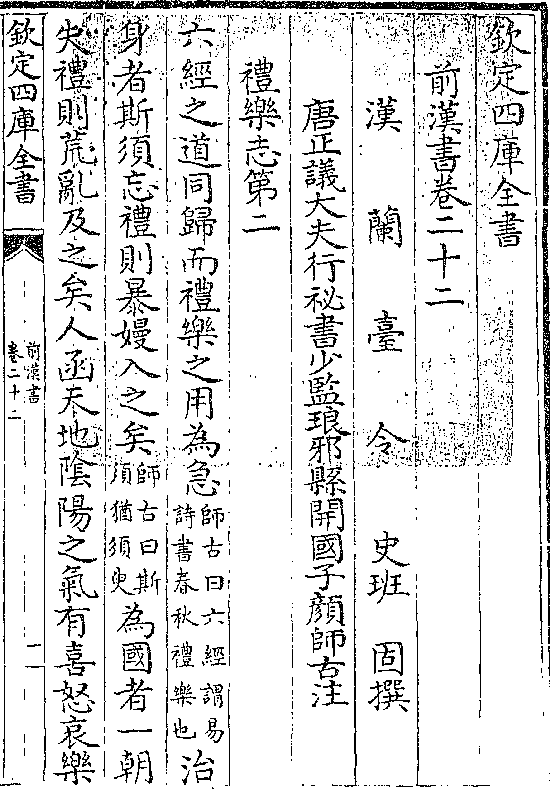 欽定四庫全書
前漢書卷二十二
漢蘭臺令史班固撰
唐正議大夫行祕書少監琅邪縣開國子顔師古注
禮樂志第二
六經之道同歸而禮樂之用為急師古曰六經謂易詩書春秋禮樂也治
身者斯須忘禮則暴嫚入之矣師古曰斯須猶須臾為國者一朝
失禮則荒亂及之矣人函天地陰陽之氣有喜怒哀樂
欽定四庫全書
前漢書
卷二十二
一